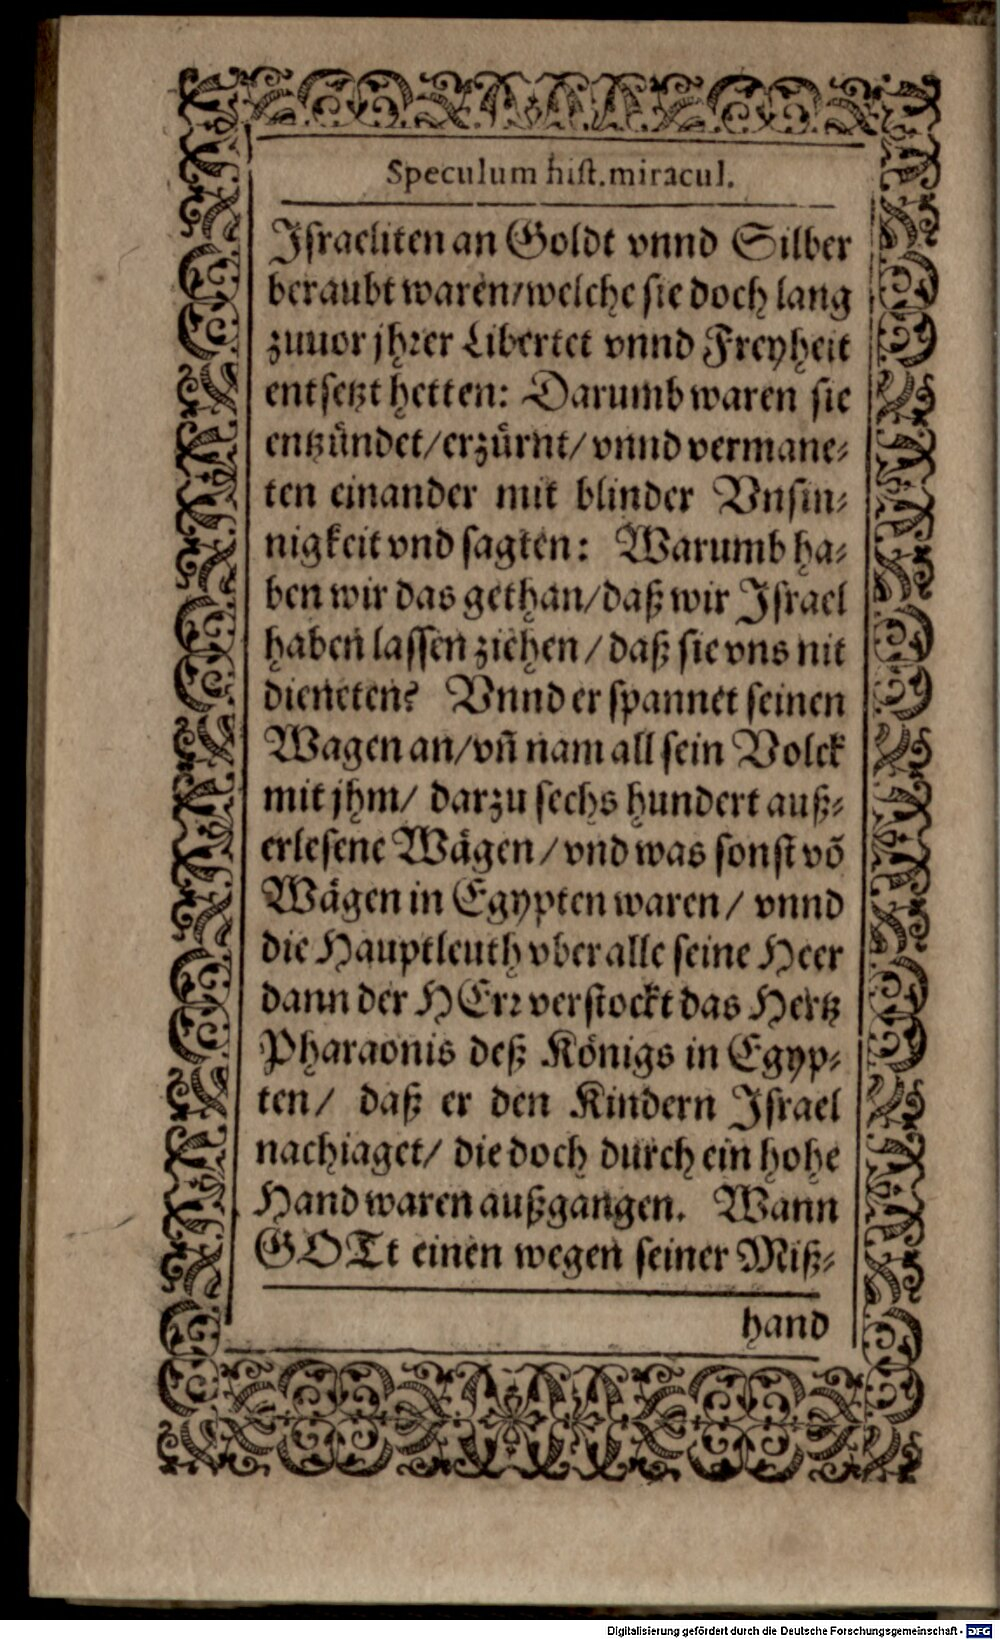 Speculum hist. miracul.
Israeliten an Goldt vnnd Silber
beraubt waren/welche sie doch lang
zuuor jhrer Libertet vnnd Freyheit
entsetzt hetten: Darumb waren sie
entzündet/erzürnt/vnnd vermane-
ten einander mit blinder Vnsin-
nigkeit vnd sagten: Warumb ha-
ben wir das gethan/daß wir Israel
haben lassen ziehen/daß sie vns nit
dieneten? Vnnd er spannet seinen
Wagen an/vñ nam all sein Volck
mit jhm/ darzu sechs hundert auß-
erlesene Wägen/vnd was sonst võ
Wägen in Egypten waren/ vnnd
die Hauptleuth vber alle seine Heer
dann der HErr verstockt das Hertz
Pharaonis deß Königs in Egyp-
ten/ daß er den Kindern Israel
nachiaget/ die doch durch ein hohe
Hand waren außgangen. Wann
GOTt einen wegen seiner Miß-
hand
Digitalisierung gefördert durch die Deutsche Forschungsgemeinschaft - DFG